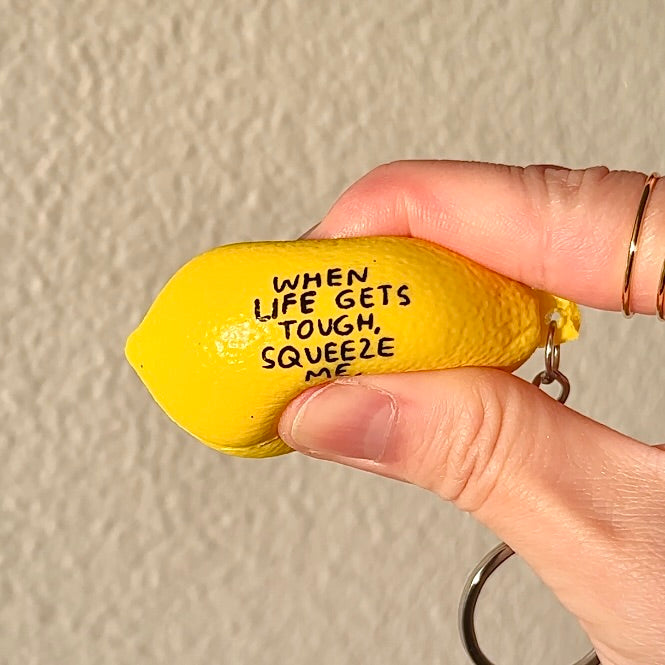 WHEN
LIFE GETS
TOUGH,
SQUEEZE
ME.